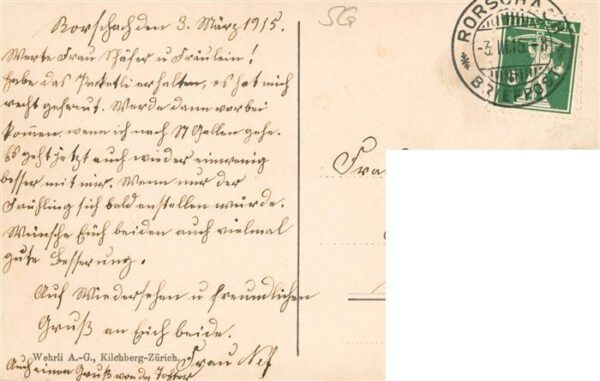 Rorschach den 3. März 1915.
Werte Frau Schäfer u Fräulein!
Habe das Paketli erhalten, es hat mich
recht gefreut. Werde dann vorbei
kommen, wenn ich nach St Gallen gehe.
Es geht jetzt auch wieder einwenig
besser mit mir. Wenn nur der
Frühling sich bald einstellen würde.
Wünsche Euch beiden auch vielmal
gute Besserung.
Auf Wiedersehen u freundlichen
Gruß an Euch beide.
Frau Nef
Auch einen Gruß von der Tochter
Wehrli A.-G., Kilchberg-Zürich.
SG
RORSCHA
-3.III.15.-8
BRIEFPOST
Fra